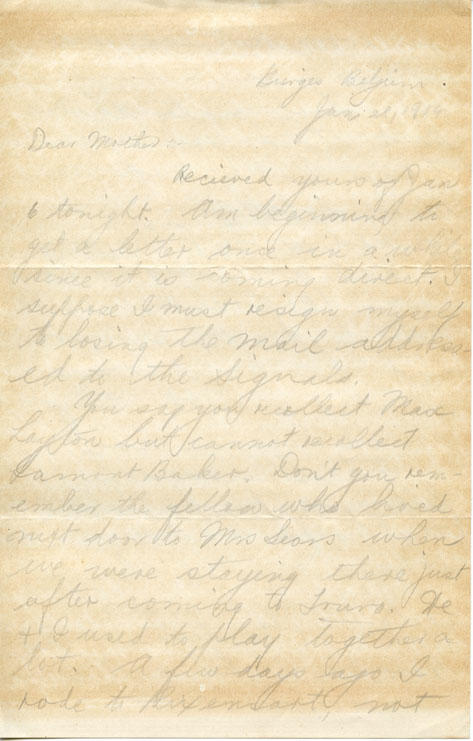 Burges Belgium.
Jan 21, 1919
Dear Mother:-
Recieved yours of Jan
6 tonight. Am beginning to
get a letter once in a while
since it is coming direct. I
suppose I must resign myself
to losing the mail address
ed to the Signals.
You say you recollect Max
Layton but cannot recollect
Lamont Baker. Don't you rem-
ember the fellow who lived
next door to Mrs Sears when
we were staying there just
after coming to Truro. He
+ I used to play together a
lot. A few days ago I
rode to Rixensart, not